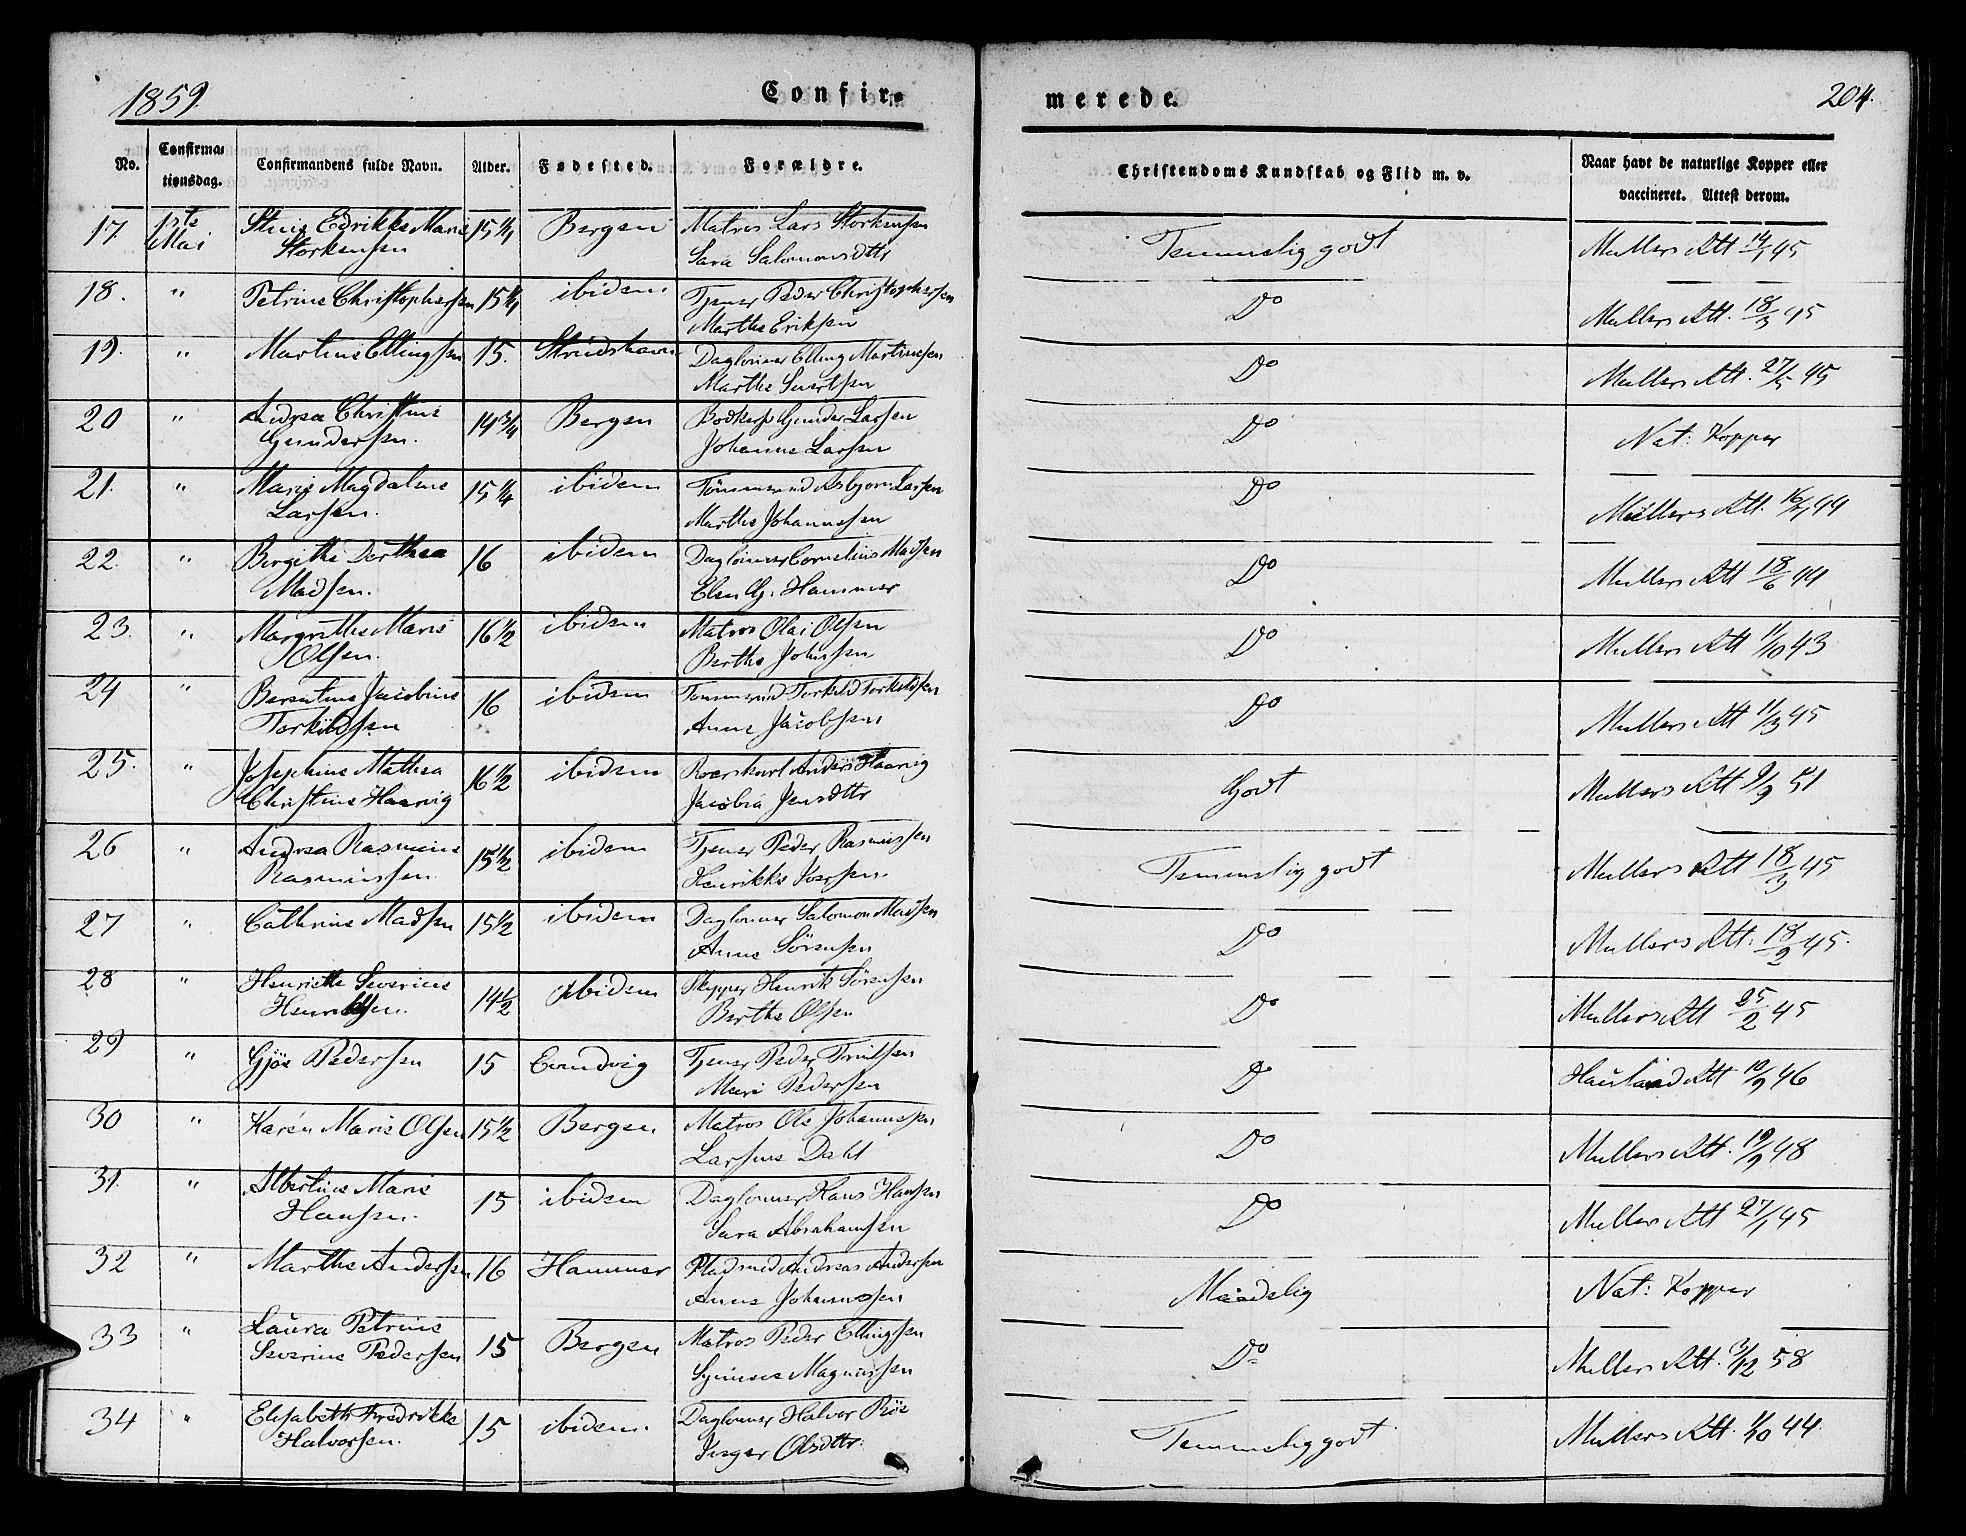 1859.
Confir-
merede.
204.
No.
Confirma-
tionsdag.
Confirmandens fulde Navn.
Alder.
Fødested.
Forældre.
Christendoms Kundskab og Flid m. v.
Naar havt de naturlige Kopper eller
vaccineret. Attest derom.
17. 1ste Edrikke Marie 15 1/4 Bergen Matros Lars Storkersen Temmelig godt Mullers Att 14/1 45
Mai Storkersen Sara Salomonsdttr
18. " Petrine Christophersen 15 1/4 ibidem Tjener Peder Christophersen Do Mullers Att. 18/3 45
Marthe Eriksen
19. " Martine Ellingsen 15. Daglønner Elling Martinesen Do Mullers Att. 27/5 45
Marthe
20 " Andrea Christine 14 3/4 Bergen Gunder Larsen Do Nat: Kopper
Gundersen. Johanne Larsen
21. " Marie Magdalene 15 1/4 ibidem Tømmermd Asbjørn Larsen Do Müllers Att. 44
Larsen. Marthe Johannesen
22. " Bergithe Dorthea 16 ibidem Daglønner Cornelius Madsen Do Mullers Att 18/6 44
Madsen. Elen G. Hammer
23. " Margrethe Marie 16 1/2 ibidem Matros Olai Olsen Do Mullers Att 11/10 43
Olsen. Berthe Johnsen
24 " Berentine Jacobine 16 ibidem Tømmermd Torkild Torkildsen Do Mullers Att 11/3 45
Torkildsen Anne Jacobsen
25. " Josephine Mathea 16 1/2 ibidem Roerskarl Anders Haarvig Godt Mullers Att 9/9 51
Christine Haarvig Jacobia Jensdttr
26 " Andrea Rasmine 15 1/2 ibidem Tjener Peder Rasmussen Temmelig godt Mullers Att 18/3 45
Rasmussen Henrikke
27 " Cathrine Madsen 15 1/2 ibidem Daglønner Salomon Madsen Do Mullers Att. 18/2 45.
Anne Sørensen
28 " Henriette Severine 14 1/2 ibidem Skipper Henrik Sørensen Do Mullers Att 25/2 45
Henriksen. Berthe Olsen
29 " Gjøe Pedersen 15 Evindvig Tjener Peder Do Hauland Att 10/9 46
Mari Pedersen
30 " Karen Marie Olsen 15 1/2 Bergen Matros Ole Johannesen Do Mullers Att. 19/9 48
Larsine Dahl
31. " Albertine Marie 15 ibidem Daglønner Hans Hansen Do Mullers Att 27/1 45
Hansen. Sara Abrahamsen
32 " Marthe Andersen 16 Hammer Pladsmd Andreas Andersen Maadelig Nat: Kopper
Anne Johannesen
33 " Laura Petrine 15 Bergen Matros Peder Ellingsen Do Mullers Att. 3/12 58
Severine Pedersen Magnussen
34 " Elisabeth Fredrikke 15 ibidem. Daglønner Halvor Temmelig godt Mullers Att. 1/10 44.
Halvorsen. Inger Olsdttr.